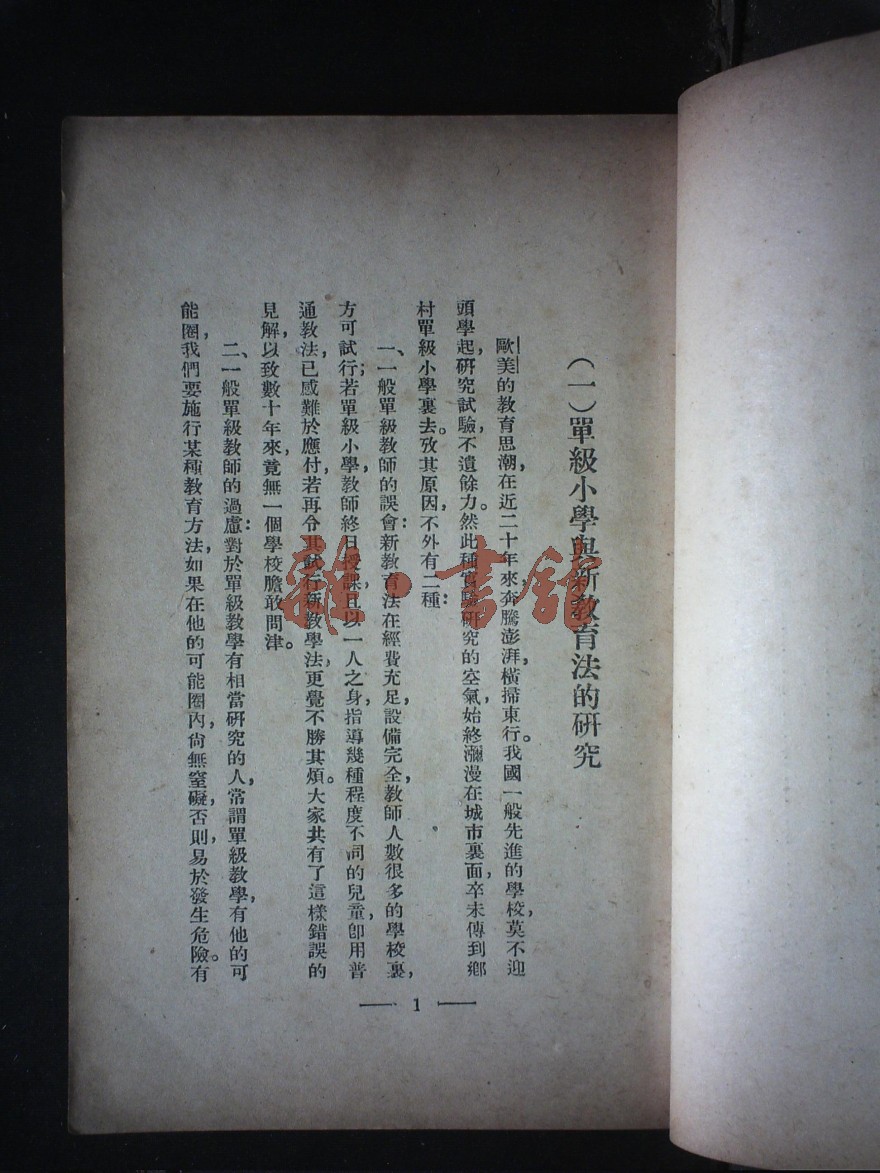 (一)單級小學與新教育法的研究
歐美的教育思潮,在近二十年來,奔騰澎湃,橫掃東行。我國一般先進的學校,莫不迎
頭學起,研究試驗,不遺餘力。然此種實驗研究的空氣,始終瀰漫在城市裏面,卒未傳到鄉
村單級小學裏去。攷其原因,不外有二種:
一、一般單級教師的誤會:新教育法在經費充足,設備完全,教師人數很多的學校裏,
方可試行;若單級小學,教師終日授課,且以一人之身,指導幾種程度不同的兒童,卽用普
通教法,已感難於應付,若再令其試行新教學法,更覺不勝其煩。大家共有了這樣錯誤的
見解,以致數十年來,竟無一個學校膽敢問津。
二、一般單級教師的過慮:對於單級教學有相當研究的人,常謂單級教學,有他的可
能圈,我們要施行某種教育方法,如果在他的可能圈內,尚無窒礙,否則,易於發生危險。有
— 1 —
雜·書館